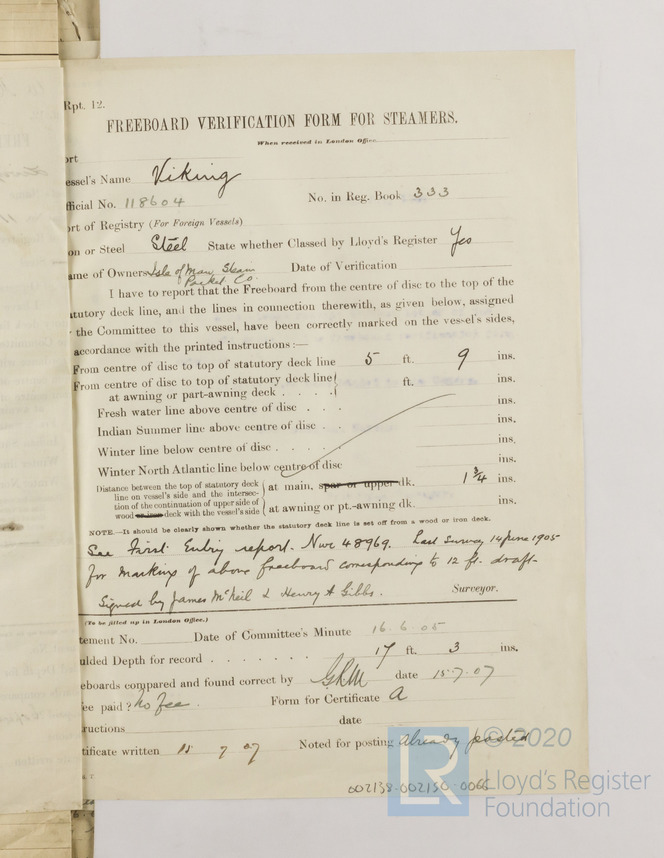 Rpt. 12.
FREEBOARD VERIFICATION FORM FOR STEAMERS.
When received in London Office
ort
essel's Name Viking
fficial No. 118604 No. in Reg. Book 333
ort of Registry (For Foreign Vessels)
on or Steel Steel State whether Classed by Lloyd's Register Yes
ame of Owners Isle of Man Steam Packet Co. Date of Verification
I have to report that the Freeboard from the centre of disc to the top of the
atutory deck line, and the lines in connection therewith, as given below, assigned
the Committee to this vessel, have been correctly marked on the vessel's sides,
accordance with the printed instructions:—
From centre of disc to top of statutory deck line 5 ft. 9 ins.
From centre of disc to top of statutory deck line at awning or part-awning deck . . . . ft. ins.
Fresh water line above centre of disc . . . ins.
Indian Summer line above centre of disc . . ins.
Winter line below centre of disc . . . . . ins.
Winter North Atlantic line below centre of disc ins.
Distance between the top of statutory deck
line on vessel's side and the intersec-
tion of the continuation of upper side of
wood or iron deck with the vessel's side
at main, spar or upper dk. 1 3/4 ins.
at awning or pt.-awning dk. ins.
NOTE.—It should be clearly shown whether the statutory deck line is set off from a wood or iron deck.
See First Entry report. Nwc 48969. Last Survey 14 June 1905
for marking of above freeboard corresponding to 12 ft. draft-
Signed by James McNeil & Henry A Gibbs. Surveyor.
(To be filled up in London Office.)
tement No. Date of Committee's Minute 16.6.05
ulded Depth for record . . . . . . . 17 ft. 3 ins.
eeboards compared and found correct by date 15-7-07
ee paid? No fee. Form for Certificate A
ructions date
tificate written 15 7 07 Noted for posting already posted
002138-002150-0066
© 2020
LR
Lloyd's Register
Foundation